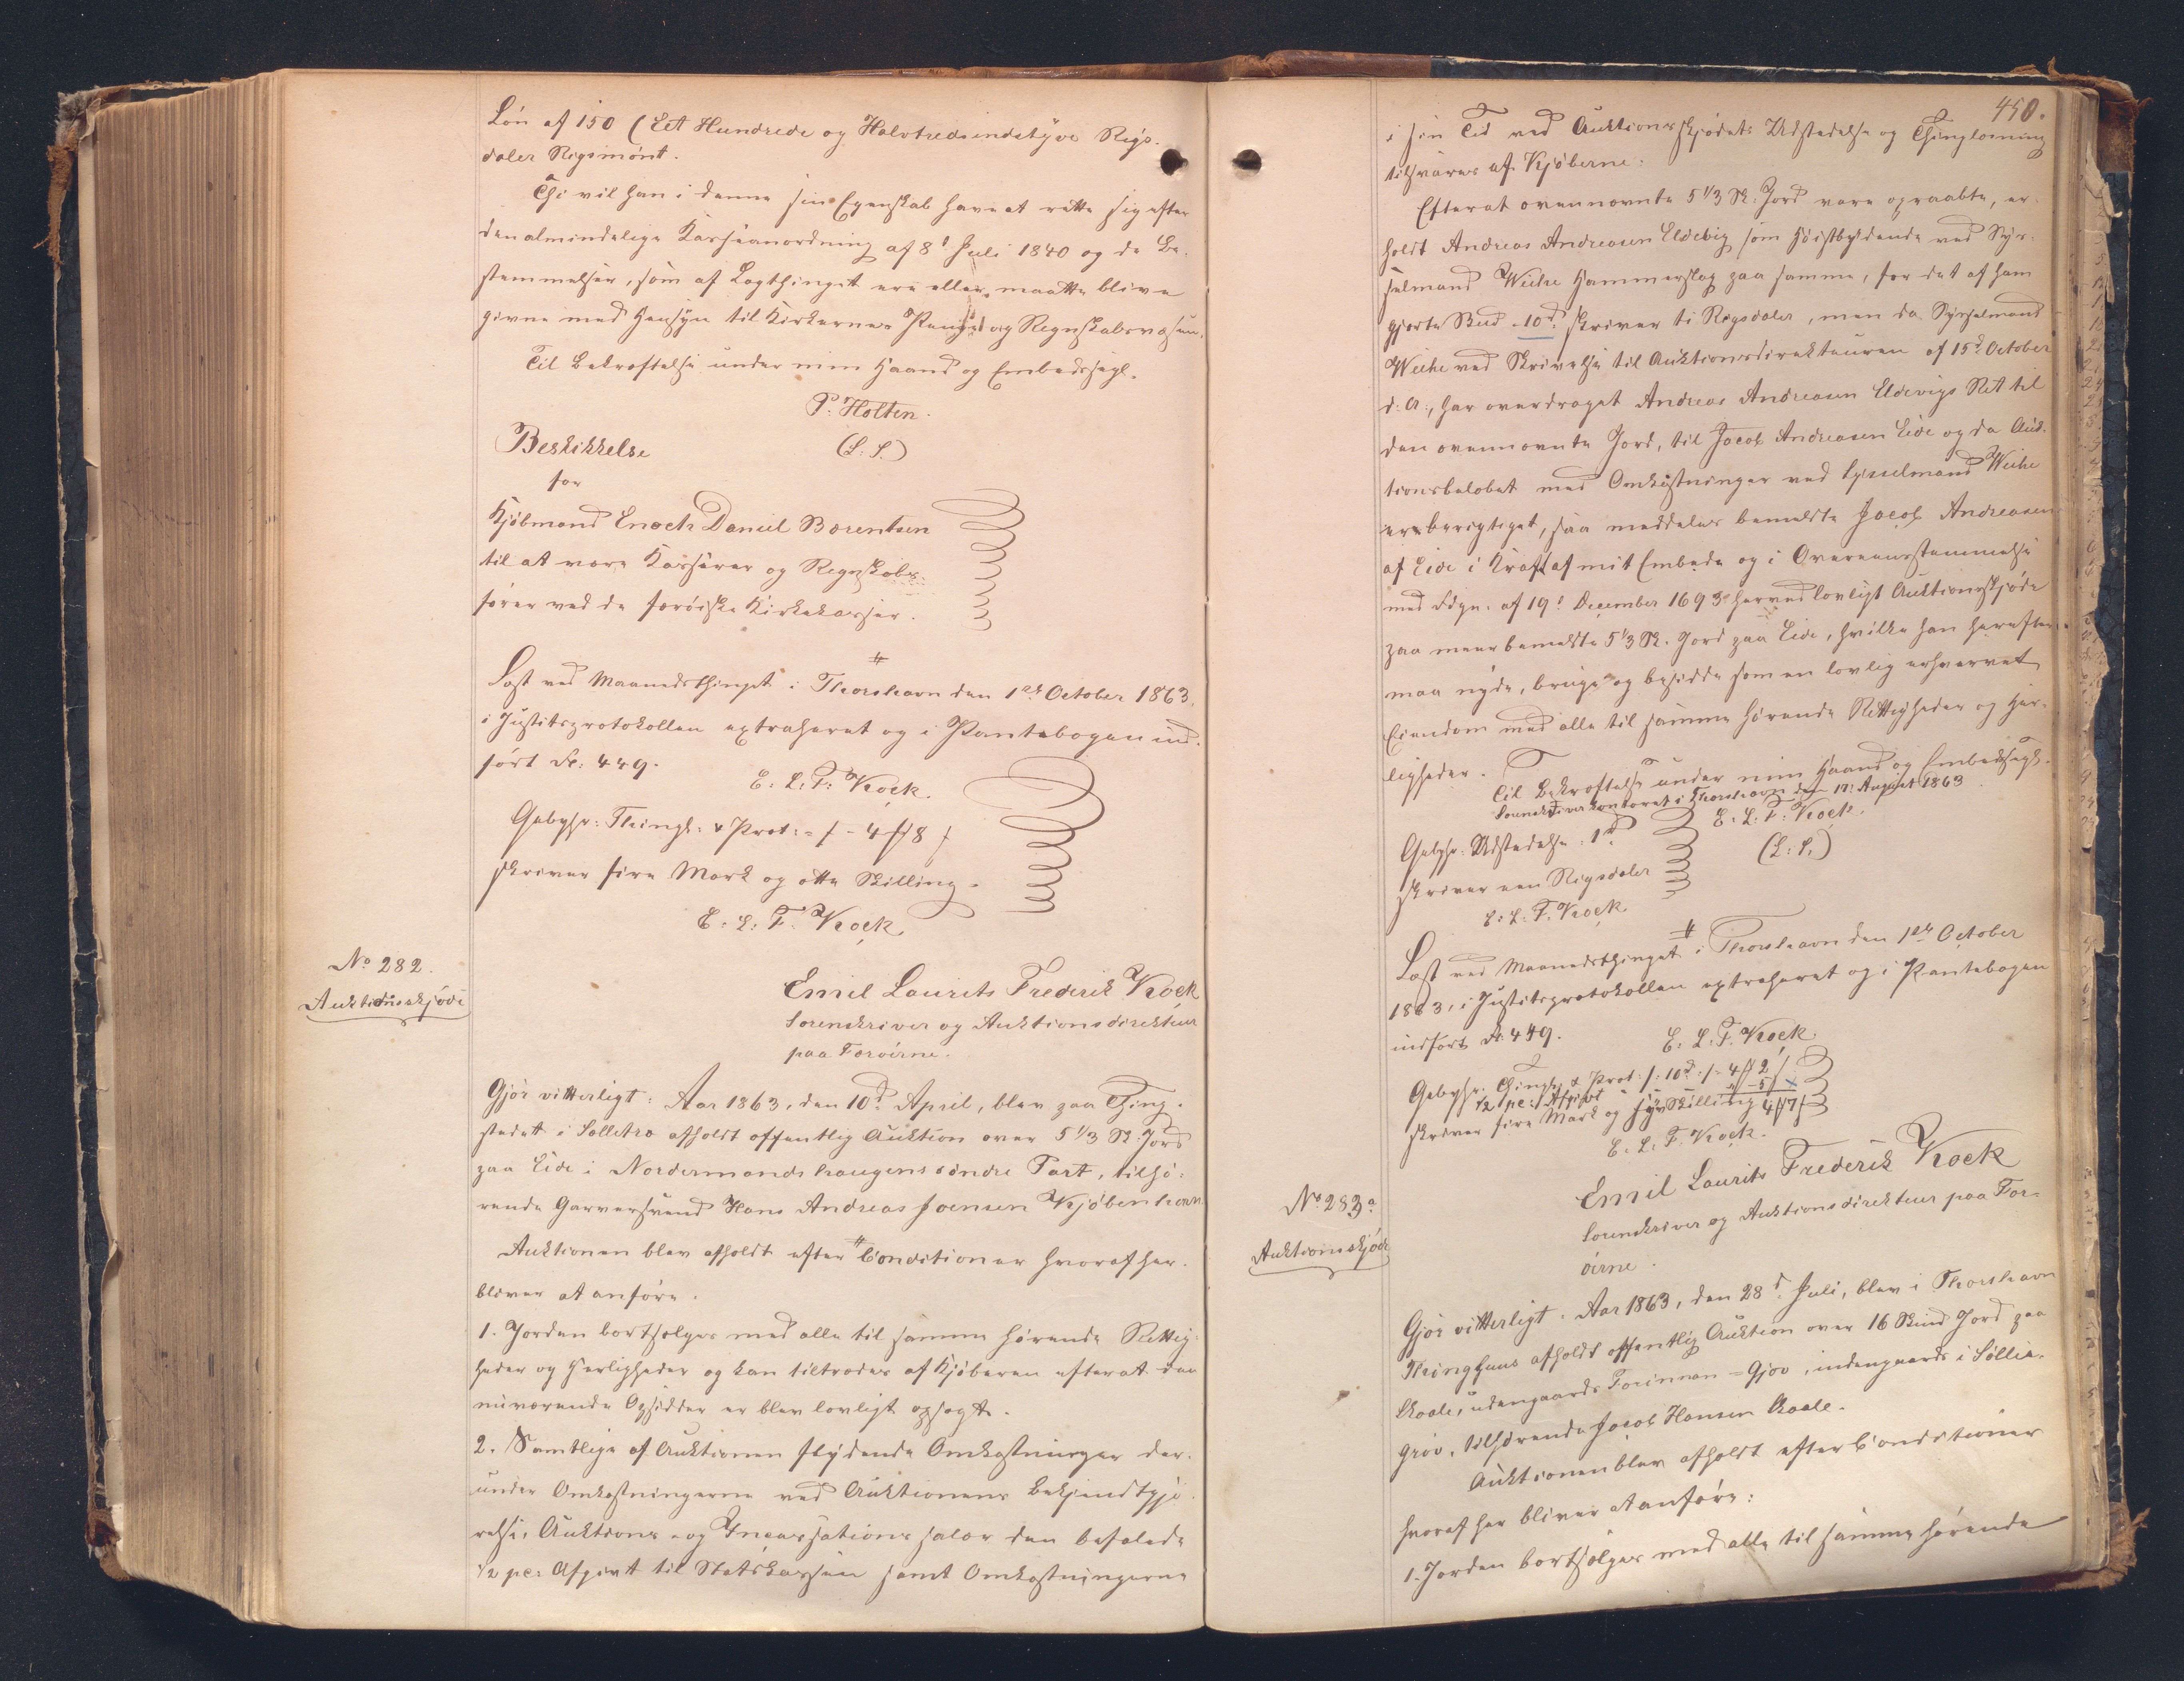 Løn af 150 (Eet Hundrede og Halvtredsindstyve Rigs-
daler Rigsmønt.
Thi vil han i denne sin Egenskab have at rette sig efter
den almindelige Kasseanordning af 8d Juli 1840 og de Be-
stemmelser, som af Lagthinget ere eller maatte blive
givne med Hensyn til Kirkernes Penge og Regnskabsvæsen.
Til Bekræftelse under min Haand og Embedssegl.
P. Holten.
(L. S.)
Beskikkelse
for
Kjøbmand Enoch Daniel Bærentsen
til at være Kasserer og Regnskabs-
fører ved de færøiske Kirkekasser.
Læst ved Maanedsthinget i Thorshavn den 1ste October 1863,
i Justitsprotokollen extraheret og i Pantebogen ind-
ført Fol: 449.
E. L. F. Kock.
Gebyhr: Thingl: & Prot: = / - 4 ß 8 /
skriver fire Mark og otte Skilling.
E. L. F. Kock
No 282.
Auktionsskjøde
Emil Laurits Frederik Kock
Sorenskriver og Auktionsdirekteur
paa Færøerne.
Gjør vitterligt: Aar 1863, den 10d April, blev paa Thing-
stedet i Selletræ afholdt offentlig Auktion over 5 1/3 Sk. Jord
paa Eide i Nordermands haugens söndre Part, tilhö-
rende Garversvend Hans Andreas Joensen Kjøbenhavn.
Auktionen blev afholdt efter Conditioner hvoraf her
bliver at anføre.
1. Jorden bortsælges med alle til samme hørende Rettig-
heder og Herligheder og kan tiltrædes af Kjøberen efterat den
nuværende Opsidder er blev lovligt opsagt.
2. Samtlige af Auktionen flydende Omkostninger der-
under Omkostningerne ved Auktionens Bekjendtgjø-
relse, Auktions- og Incassations salær den befalede
1/2 pc: Afgivt til Statskassen samt Omkostningerne
450.
i sin Tid ved Auktionsskjødets Udstedelse og Thinglæsning
tilsvares af Kjøberne.
Efterat ovennævnte 5 1/3 Sk. Jord vare opraabte, er-
holdt Andreas Andreasen Eldevig som høistbydende ved Sys-
selmand Weihe Hammerslag paa samme, for det af ham
gjorte Bud - 10d skriver ti Rigsdaler, men da Sysselmand
Weihe ved Skrivelse til Auktionsdirekteuren af 15d October
d: A:, har overdraget Andreas Andreasen Eldevigs Ret til
den ovennævnte Jord, til Jacob Andreasen Eide og da Auk-
tionsbeløbet med Omkostninger ved Sysselmand Weihe
er berigtiget, saa meddeles bemeldte Jacob Andreasen
af Eide i Kraft af mit Embede og i Overeensstemmelse
med Fdgn. af 19d December 1693 herved lovligt Auktionsskjøde
paa meerbemeldte 5 1/3 Sk. Jord paa Eide, hvilke han herefter
maa nyde, bruge og besidde som en lovlig erhvervet
Eiendom med alle til samme hørende Rettigheder og Her-
ligheder.
Til Bekræftelse under min Haand og Embedssegl.
Sorenskriverkontoret i Thorshavn den 17d August 1863
E. L. F. Kock.
(L. S.)
Gebyhr: Udstedelse: 1d
skriver een Rigsdaler
E. L. F. Kock
Læst ved Maanedsthinget i Thorshavn den 1ste October
1863, i Justitsprotokollen extraheret og i Pantebogen
indført Fol: 449.
E. L. F. Kock
Gebyhr. Thingl: & Prot: /: 10d :/ - 4 ß 2 /
1/2 pc: Afgivt " - 5 /
skriver fire Mark og syv Skilling 4 ß 7 /
E. L. F. Kock.
No 283a
Auktionsskjøde
Emil Laurits Frederik Kock
Sorenskriver og Auktionsdirekteur paa Fær-
øerne.
Gjør vitterligt: Aar 1863, den 28d Juli, blev i Thorshavn
Thinghuus afholdt offentlig Auktion over 16 Skind Jord paa
Skaale, udengaards Forinnan-Gjov, indengaards i Söllia-
grøv, tilhørende Jacob Hansen Skaale.
Auktionen blev afholdt efter Conditioner
hvoraf her bliver at anføre:
1. Jorden bortsælges med alle til samme hørende